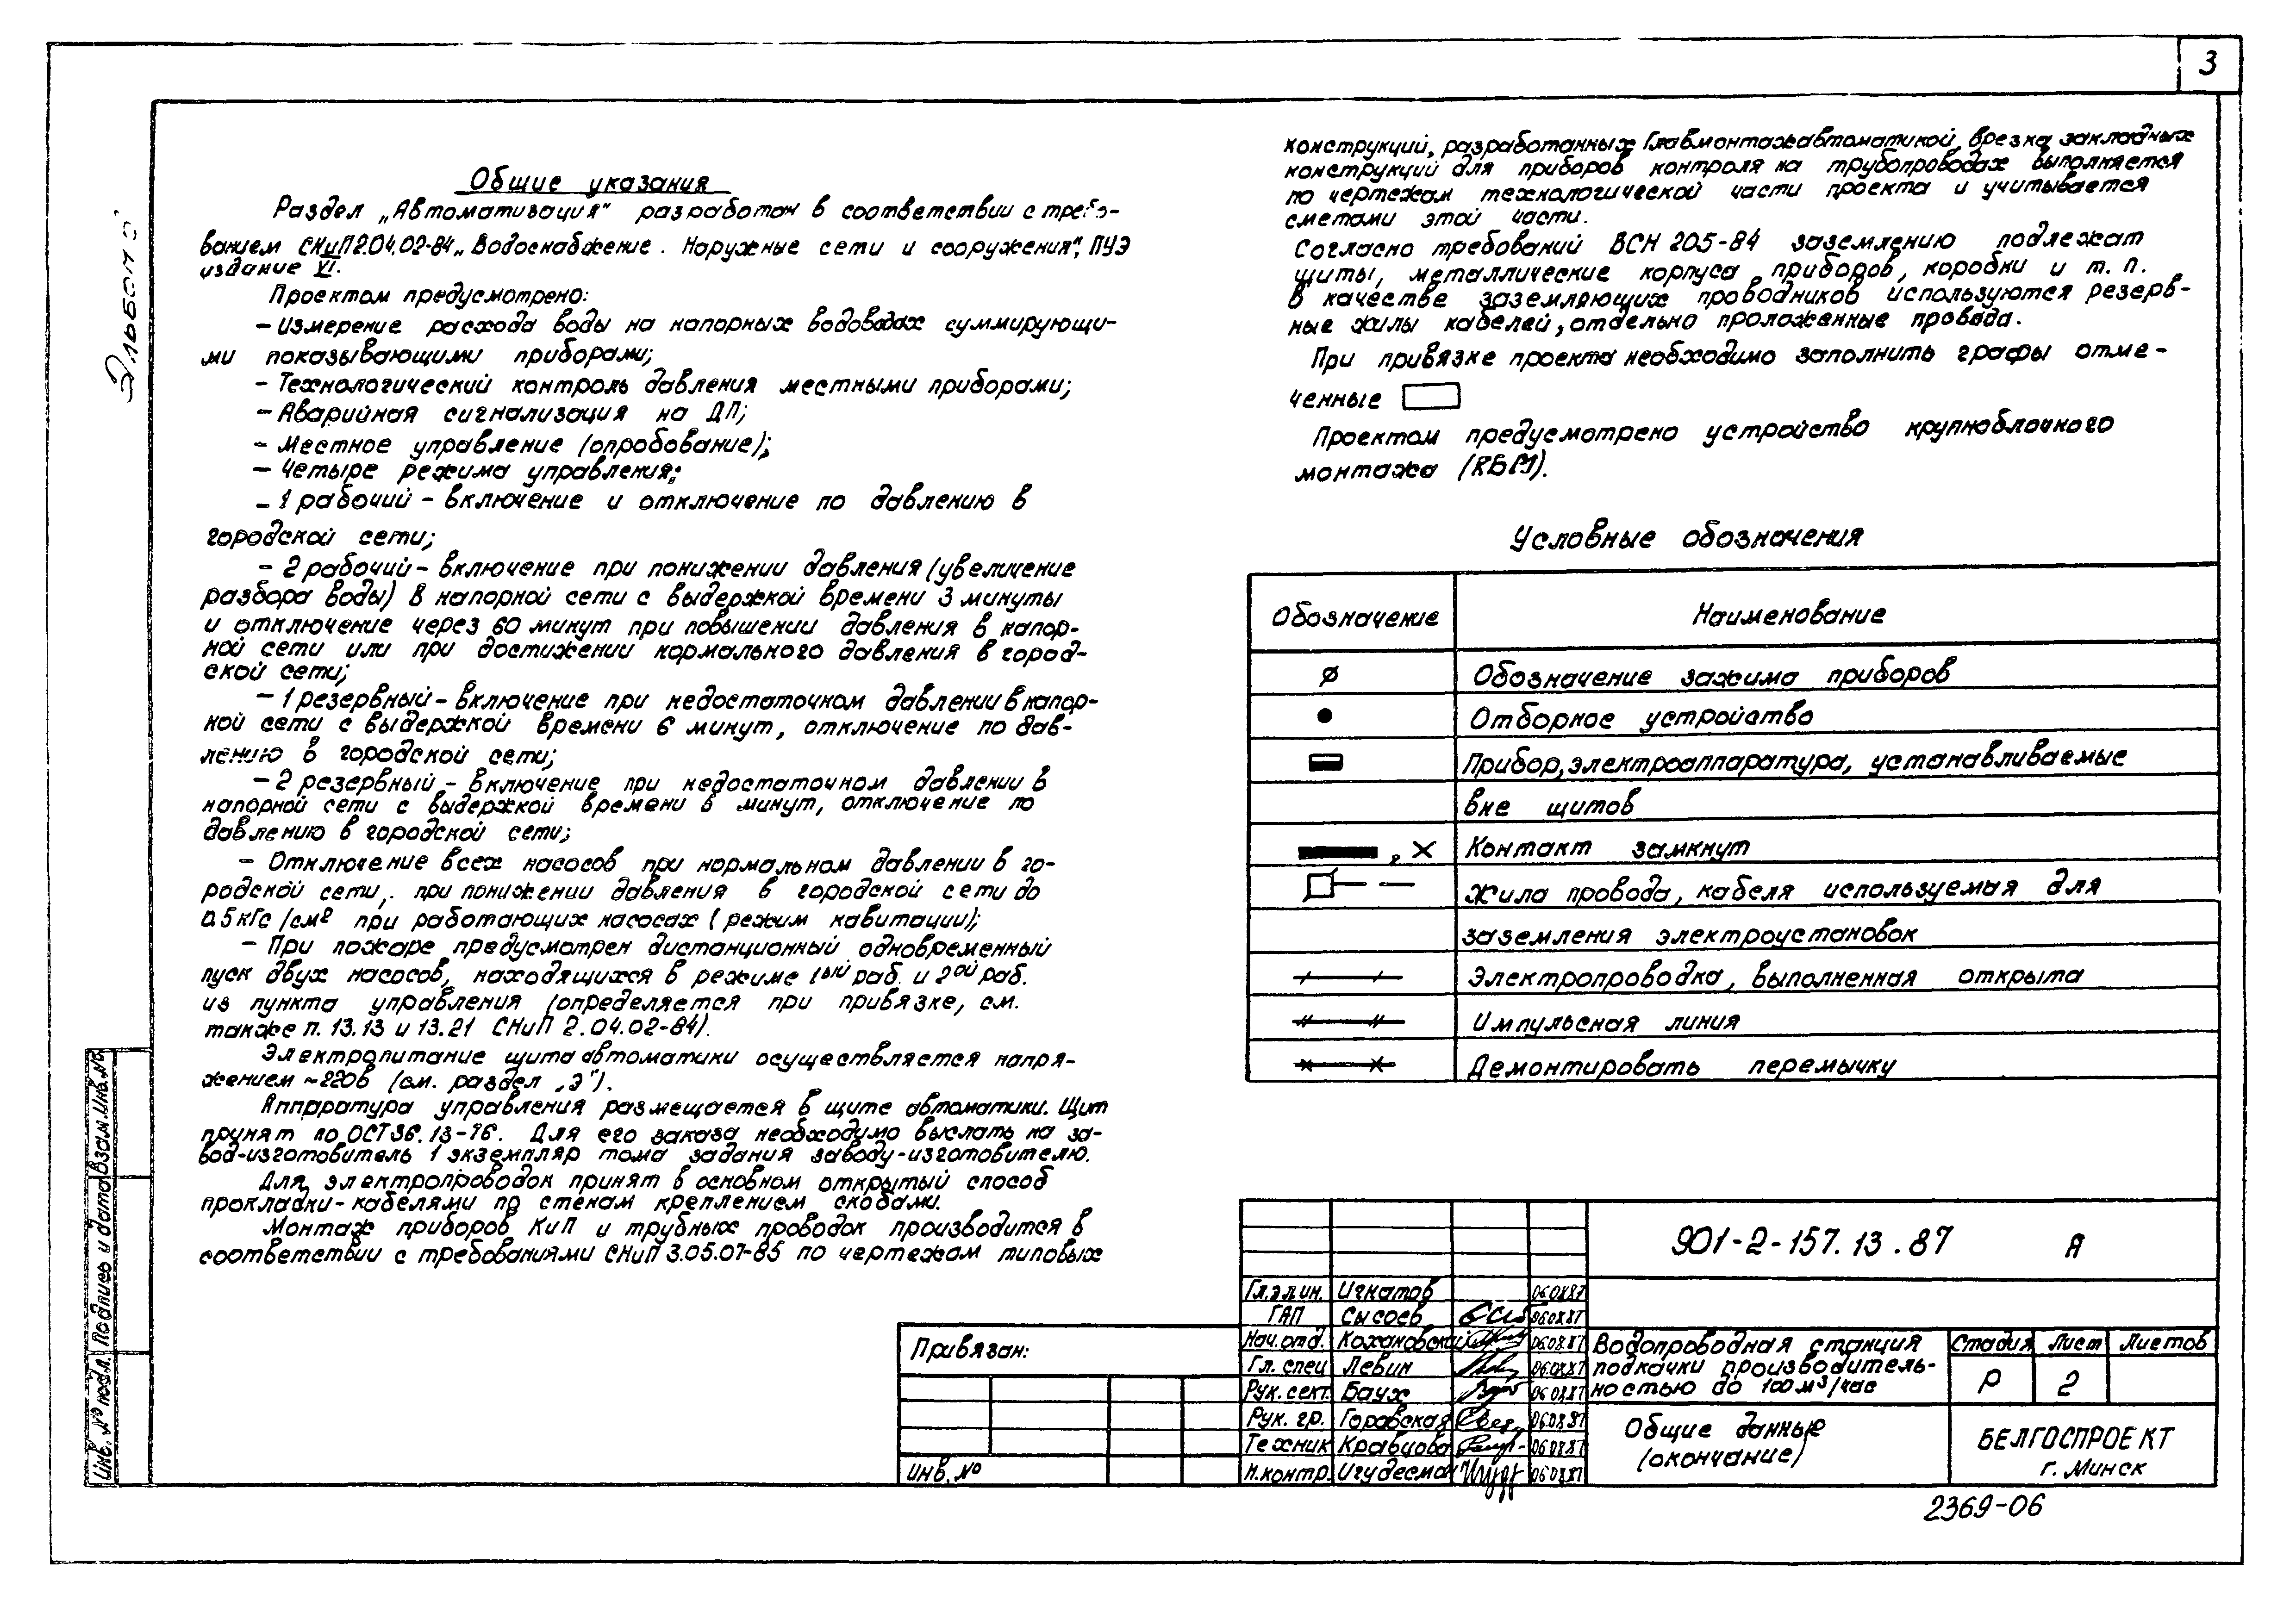 3
Общие указания
Раздел „Автоматизация" разработан в соответствии с требо-
ванием СНиП 2.04.02-84 „Водоснабжение. Наружные сети и сооружения", ПУЭ
издание VI.
Проектом предусмотрено:
- Измерение расхода воды на напорных водоводах суммирующи-
ми показывающими приборами;
- Технологический контроль давления местными приборами;
- Аварийная сигнализация на ДП;
- Местное управление (опробование);
- Четыре режима управления:
- 1 рабочий - включение и отключение по давлению в
городской сети;
- 2 рабочий - включение при понижении давления (увеличение
разбора воды) в напорной сети с выдержкой времени 3 минуты
и отключение через 60 минут при повышении давления в напор-
ной сети или при достижении нормального давления в город-
ской сети;
- 1 резервный - включение при недостаточном давлении в напор-
ной сети с выдержкой времени 6 минут, отключение по дав-
лению в городской сети;
- 2 резервный - включение при недостаточном давлении в
напорной сети с выдержкой времени минут, отключение по
давлению в городской сети;
- Отключение всех насосов при нормальном давлении в го-
родской сети, при понижении давления в городской сети до
0.5 кГс/см² при работающих насосах (режим кавитации);
- При пожаре предусмотрен дистанционный одновременный
пуск двух насосов, находящихся в режиме 1ый раб. и 2ой раб.
из пункта управления (определяется при привязке, см.
также п. 13.13 и 13.21 СНиП 2.04.02-84).
Электропитание щита автоматики осуществляется напря-
жением ~220в (см. раздел „Э").
Аппаратура управления размещается в щите автоматики. Щит
принят по ОСТ 36.13-76. Для его заказа необходимо выслать на за-
вод-изготовитель 1 экземпляр тома задания заводу-изготовителю.
Для электропроводок принят в основном открытый способ
прокладки - кабелями по стенам креплением скобами.
Монтаж приборов КиП и трубных проводок производится в
соответствии с требованиями СНиП 3.05.07-85 по чертежам типовых
конструкций, разработанных Главмонтажавтоматикой, врезка закладных
конструкций для приборов контроля на трубопроводах выполняется
по чертежам технологической части проекта и учитывается
сметами этой части.
Согласно требований ВСН 205-84 заземлению подлежат
щиты, металлические корпуса приборов, коробки и т. п.
В качестве заземляющих проводников используются резерв-
ные жилы кабелей, отдельно проложенные провода.
При привязке проекта необходимо заполнить графы отме-
ченные
Проектом предусмотрено устройство крупноблочного
монтажа (КБМ).
Условные обозначения
Обозначение Наименование
Обозначение зажима приборов
Отборное устройство
Прибор, электроаппаратура, устанавливаемые
вне щитов
, × Контакт замкнут
Жила провода, кабеля используемая для
заземления электроустановок
Электропроводка, выполненная открыта
Импульсная линия
Демонтировать перемычку
Альбом
Инв. № подл. Подпись и дата Взам. Инв. №
901-2-157.13.87 А
Гл. эл. ин. Игнатов 06.08.87
ГАП Сысоев 06.08.87
Нач. отд. Кохановский 06.08.87
Гл. спец Левин 06.08.87
Рук. сект. Баух 06.08.87
Рук. гр. Горавская 06.08.87
Техник Кравцова 06.08.87
Н. контр. Игудесман 06.08.87
Привязан:
Инв. №
Водопроводная станция
подкачки производитель-
ностью до 100 м³/час
Стадия Лист Листов
Р 2
Общие данные
(окончание)
БЕЛГОСПРОЕКТ
г. Минск
2369-06